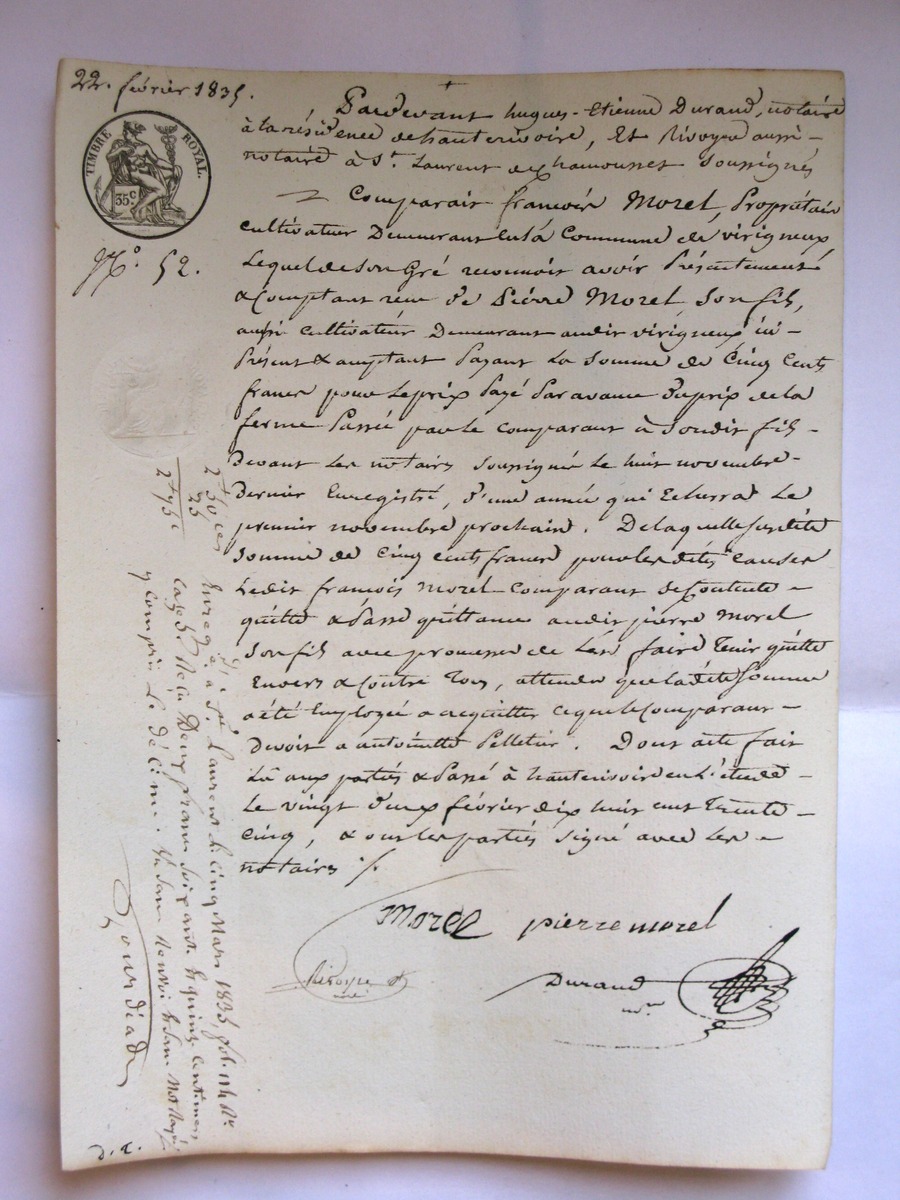 22. février 1835.
TIMBRE ROYAL.
35 c
N.° 52.
Pardevant hugues-Etienne Durand, notaire
à la résidence de hauterivoire, Et Rivoyre aussi
notaire à S.t Laurent de chamousset soussignés
Comparait françois Morel, Propriétaire
cultivateur Demeurant en la Commune de virigneux
Lequel de son Gré reconnoit avoir Présentement
& Comptant reçu de Pierre Morel, son fils,
aussi cultivateur Demeurant audit virigneux ici
Présent & acceptant Payant La somme de Cinq Cents
francs pour le prix Payé Par avance Du prix de la
ferme Passée par le comparant à Sondit fils
devant Les notaires soussignés Le huit novembre
Dernier Enregistré, d'une année qui Echerra Le
premier novembre prochain. De laquelle susdite
somme de Cinq cents francs pour les dites causes
Ledit françois morel comparant se contente
quitte & Passe quittance audit pierre morel
son fils avec promesse de L'en faire Tenir quitte
Envers & Contre Tous, attendu que ladite somme
a été Employée a acquitter ce que le comparant
Devoit a antoinette Pelletier. Dont acte fait
Lu aux parties & Passé à hauterivoir en L'étude
Le vingt deux février dix huit cent Trente
Cinq, & ont les parties signé avec Les
notaires
Morel pierre morel
Rivoyre
Durand
n.re
2 f 50 c
25
2 f 75 c
Enreg.é à S.t Laurent le cinq Mars 1835, fol.
Reçu Deux francs soixante & quinze centimes
y compris Le décime.
D. T.